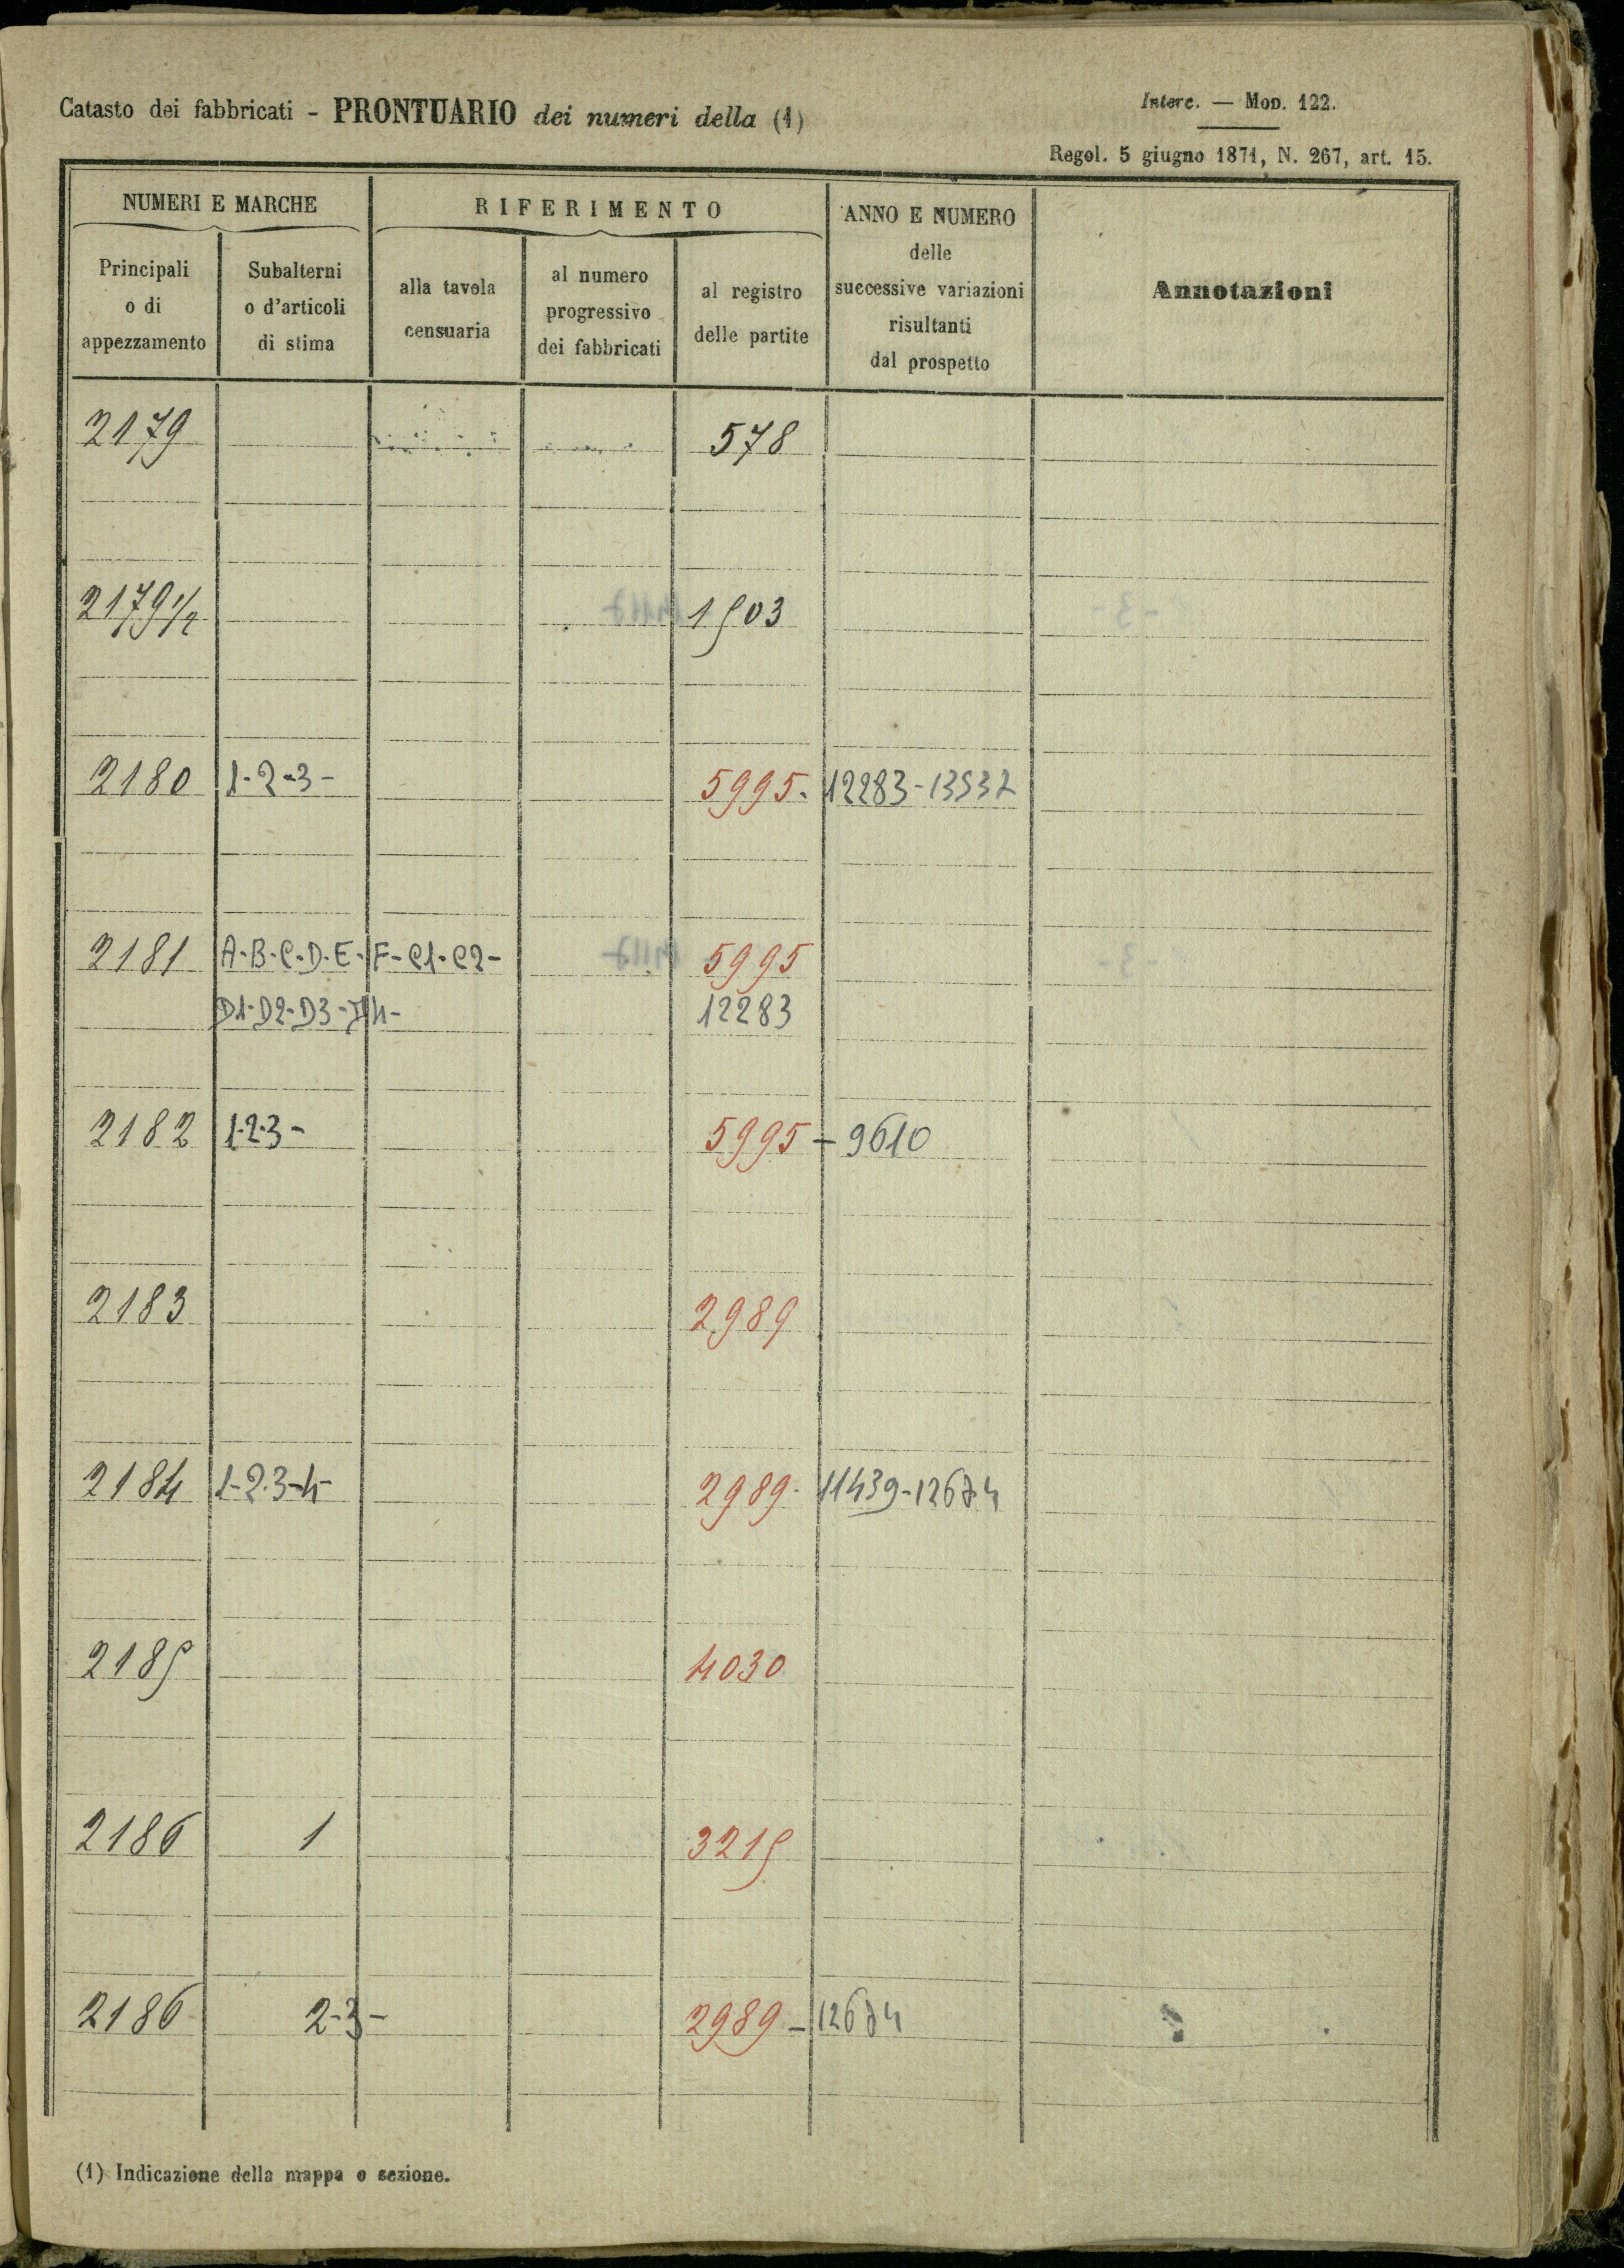 Catasto dei fabbricati - PRONTUARIO dei numeri della (1)
Interc. — Mod. 122.
Regol. 5 giugno 1871, N. 267, art. 15.
NUMERI E MARCHE
RIFERIMENTO
ANNO E NUMERO
delle
successive variazioni
risultanti
dal prospetto
Annotazioni
Principali
o di
appezzamento
Subalterni
o d'articoli
di stima
alla tavola
censuaria
al numero
progressivo
dei fabbricati
al registro
delle partite
2179 578
2179 1/2 1503
2180 1-2-3- 5995. 12283-
2181 A-B-C-D-E-F-C1-C2- 5995
D1-D2-D3-D4- 12283
2182 1-2-3- 5995 - 9610
2183 2989
2184 1-2-3-4- 2989- 11439-12674
2185 4030
2186 1 3215
2186 2-3- 2989 - 12674
(1) Indicazione della mappa o sezione.